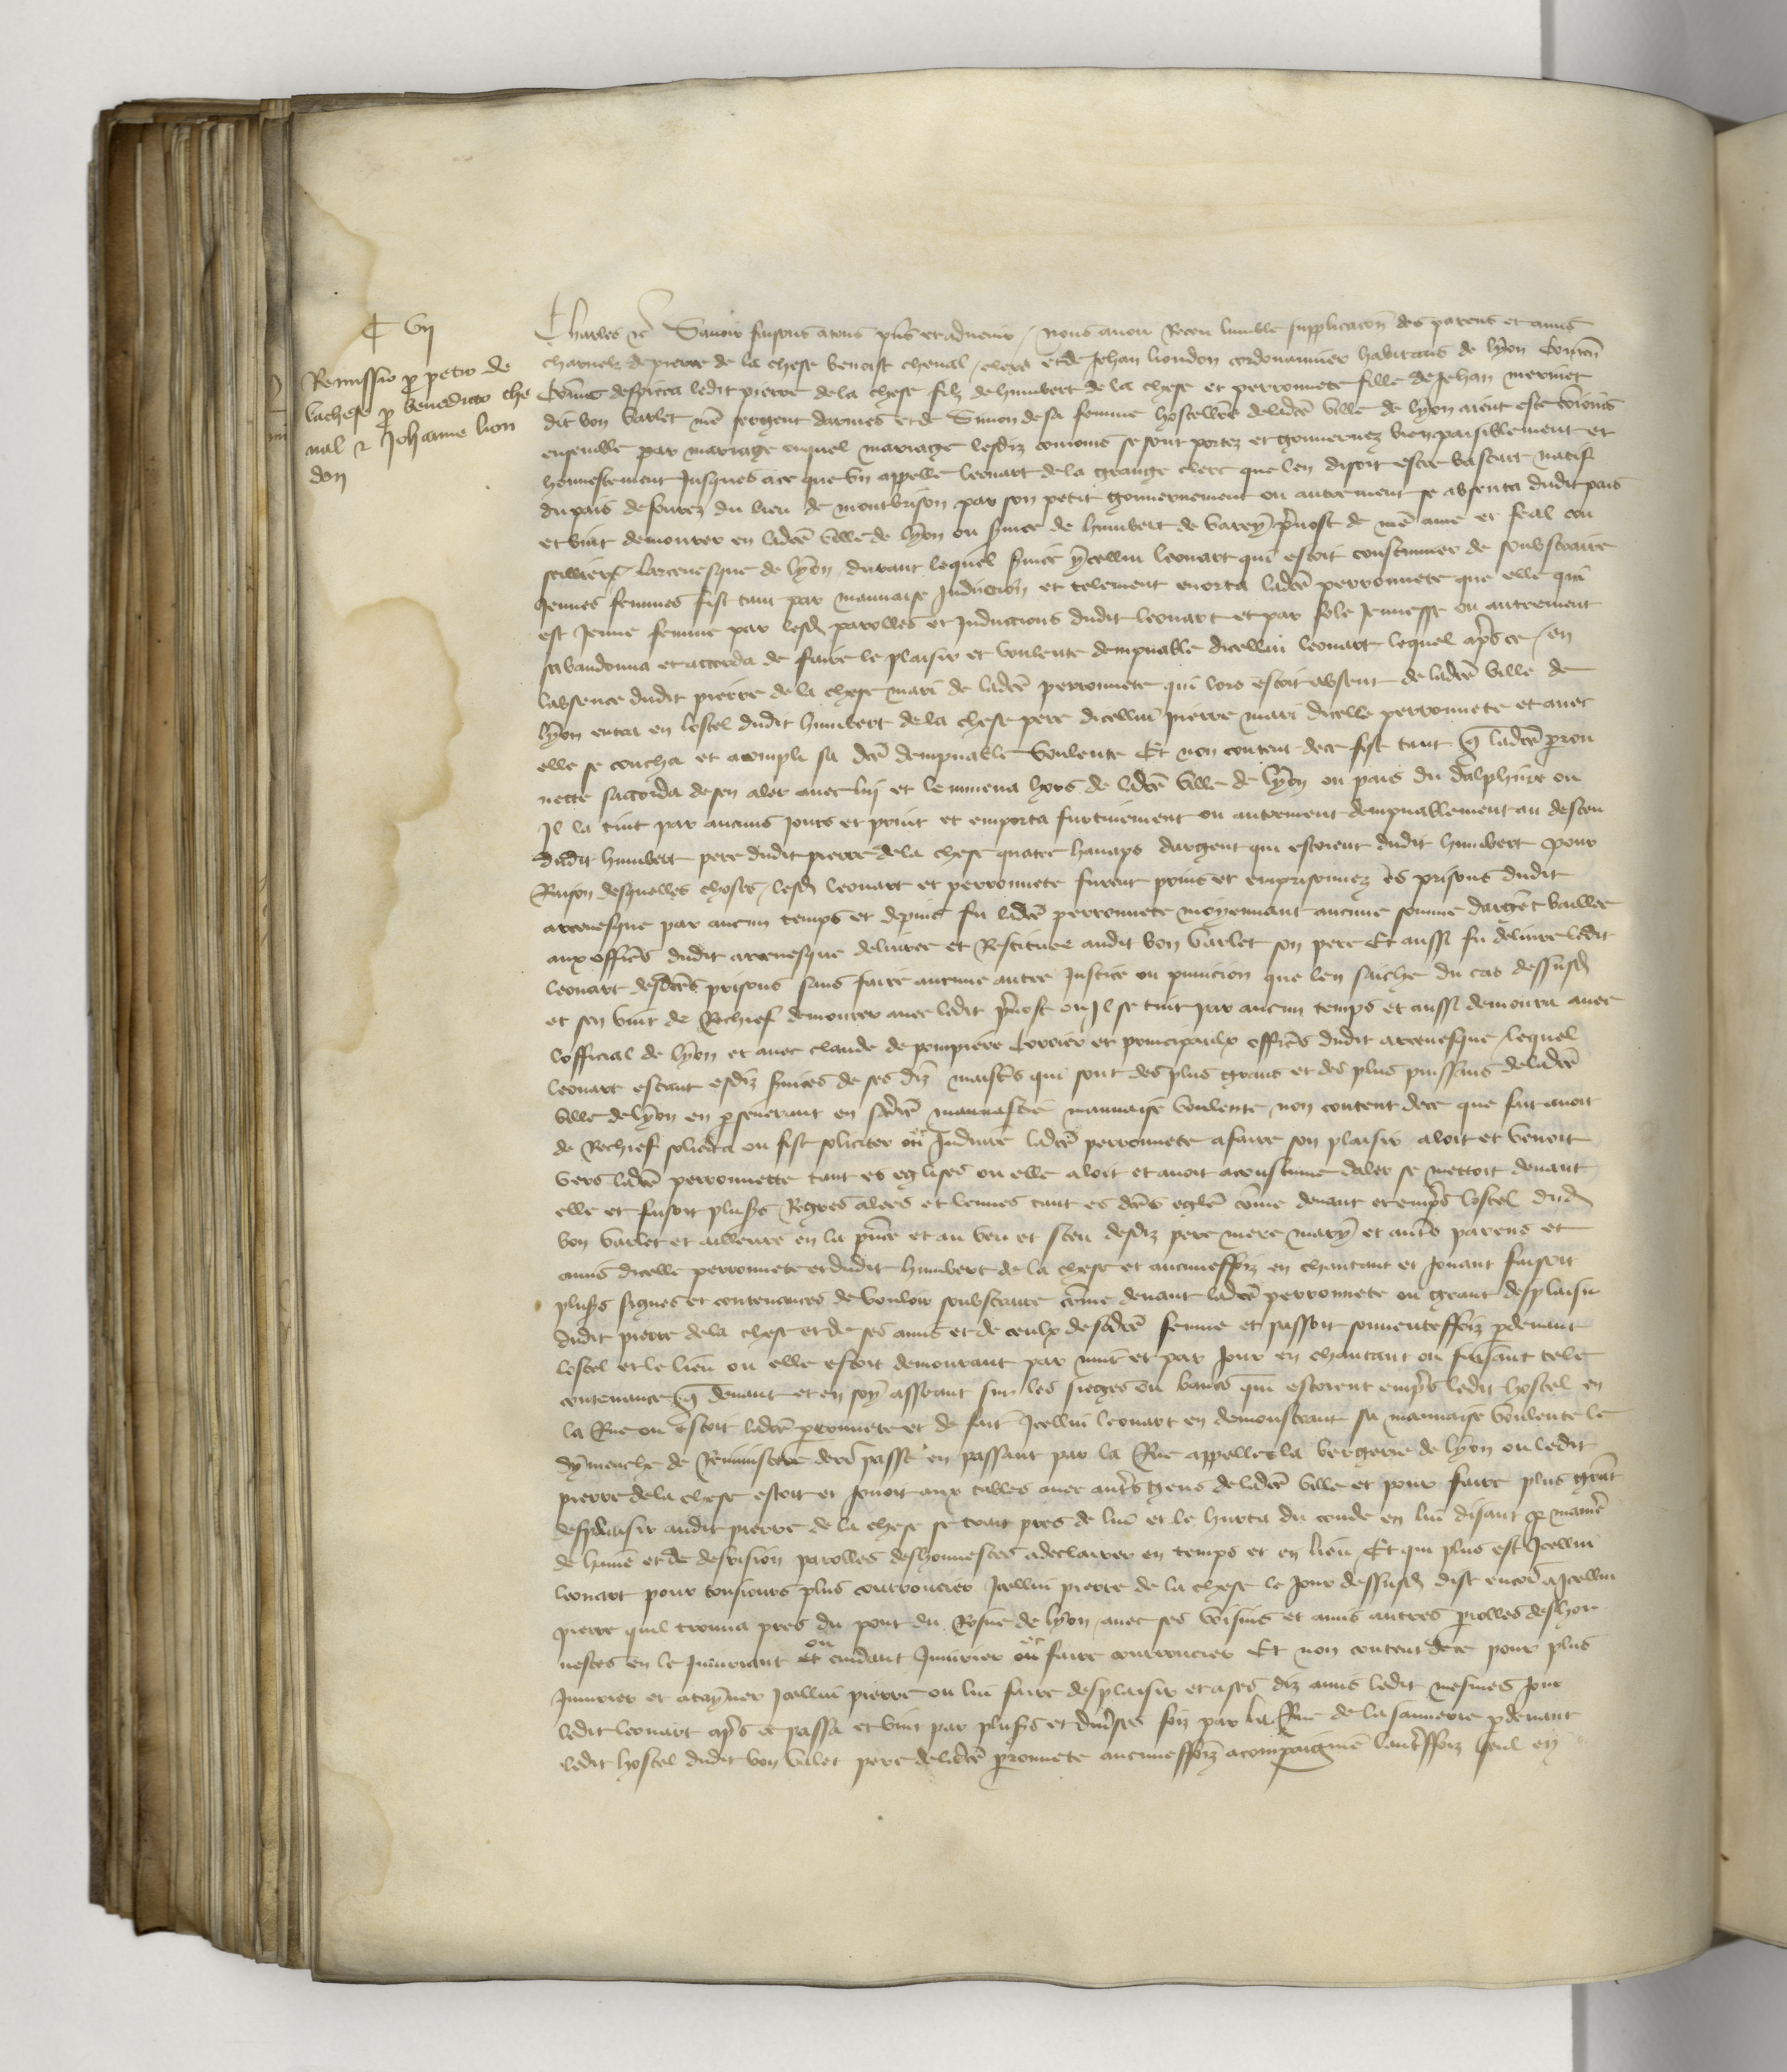 C VII
Remissio pro petro de
lachese pro benedicto che
nal & Johanne lion
don
Charles etc Savoir faisons a tous presens et advenir / nous avoir Receu lumble supplicacion des parens et amis
charnelz de pierre de la chese benoist cheval / clers et de Jehan liondon cordouannier habitans de lyon Conten
Comme despieca ledit pierre de la chese filz de humbert de la chese et perronnete fille de Jehan mermet
dit bon varlet nostre sergent darmes et de Simon de sa femme hostelliere de ladicte ville de lyon aient este conjoins
ensemble par mariage ouquel mariage lesdiz conjoins se sont portez et gouvernez bien paisiblement et
honnestement Jusques a ce que un appelle leonart de la grange clerc que len disoit estre bastart natif
du pais de fourez du lieu de montbrison par son petit gouvernement ou autrement se absenta dudit pais
et vint demourer en ladicte ville de lyon ou service de humbert de varey prevost de nostre ame et feal con
seillier / larcevesque de lyon / durant lequel service ycellui leonart qui estoit coustumier de soubstraire
Jeunes femmes fist tant par mauvaise Induction et telement enorta ladicte perronnete que elle qui
est Jeune femme par lesd parolles et Inductions dudit leonart et par fole Jeunesse ou autrement
sabandonna et accorda de faire le plaisir et voulente dempnable dicellui leonart lequel apres ce / en
labsence dudit pierre de la chese mari de ladicte perronnete qui lors estoit absent de ladicte ville de
lyon entra en lostel dudit humbert de la chese pere dicellui pierre mari dicelle perronnete et avec
elle se coucha et acompli sa dicte dempnable voulente Et non content de ce fist tant que ladicte perron
nette saccorda de sen aler avec luy et lemmena hors de ladicte ville de lyon ou pais du dalphine ou
Il la tint par aucuns Jours et print et emporta furtivement ou autrement dempnablement au desceu
dudit humbert pere dudit pierre de la chese quatre hanaps dargent qui estoient dudit humbert pour
Raison desquelles choses / lesd leonart et perronnete furent prins et emprisonnez es prisons dudit
arcevesque par aucun temps et depuis fu ladicte perronnete moyennant aucune somme dargent baillee
aux officiers dudit arcevesque delivree et Restituee audit bon varlet son pere Et aussi fu delivre ledit
leonart desdictes prisons sans faire aucune autre Justice ou punicion que len saiche du cas dessusd
et sen vint de Rechief demourer avec ledit prevost ou Il se tint par aucun temps et aussi demoura avec
lofficial de lyon et avec claude de pompierre Correier et principaulx officiers dudit arcevesque / lequel
leonart estant esdiz services de ses diz maistres qui sont des plus grans et des plus puissans de ladicte
ville de lyon en perseverant en sadicte mauvaistie mauvaise voulente non content de ce que fait avoit
de Rechief solicita ou fist soliciter et Induire ladicte perronnete a faire son plaisir aloit et venoit
vers ladicte perronnette tant es eglises ou elle aloit et avoit acoustume daler se mettoit devant
elle et faisoit plusieurs Regres alees et venues tant es dictes eglises comme devant et empres lostel dud
bon varlet et ailleurs en la presence et au veu et sceu desdiz pere mere mary et autres parens et
amis dicelle perronnete et dudit humbert de la chese et aucuneffoiz en chantant et Jouant faisoit
plusieurs signes et contenances de vouloir soubstraire comme devant ladicte perronnete ou grant desplaisir
dudit pierre de la chese et de ses amis et de ceulx de sadicte femme et passoit souventeffoiz pardevant
lostel et le lieu ou elle estoit demourant par nuit et par Jour en chantant ou faisant tele
contenance que devant et en soy asseant sur les sieges ou bancs qui estoient empres ledit hostel en
la Rue ou estoit ladicte perronnete et de fait Icellui leonart en demonstrant sa mauvaise voulente le
dymenche de Reminiscere derrenier passe en passant par la Rue appellee la vergerie de lyon ou ledit
pierre de la chese estoit et Jouoit aux tables avec autres gens de ladicte ville et pour faire plus grant
desplaisir audit pierre de la chese se trait pres de lui et le hurta du coude en lui disant par maniere
de haine et de desrision parolles deshonnestes a declairer en temps et en lieu Et qui plus est Icellui
leonart pour tousiours plus courroucier Icellui pierre de la chese le Jour dessusd dist encores a Icellui
pierre quil trouva pres du pont du Rosne de lyon avec ses voisins et amis autres parolles deshon
nestes en le Injuriant ou cuidant Injurier et faire courroucier Et non content de ce pour plus
Injurier et atayner Icellui pierre ou lui faire desplaisir et a ses diz amis ledit mesmes Jour
ledit leonart apres ce passa et vint par plusieurs et diverses foiz par la Rue de la saunerie pardevant
ledit hostel dudit bon valet pere de ladicte perronnete aucuneffoiz acompaignie lautreffoiz seul en